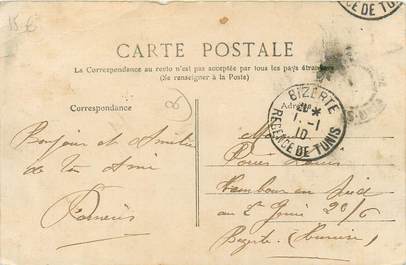 15 €
CARTE POSTALE
La Correspondance au recto n'est pas acceptée par tous les pays étrangers
(Se renseigner à la Poste)
Correspondance
Adresse
BIZERTE
1 - 1
10
REGENCE DE TUNIS
CE DE TUNIS
Bonjour et Amitiés
de ton Ami
Louis
Tambour en pied
au 2e Génie 20/6
Bizerte (Tunisie)